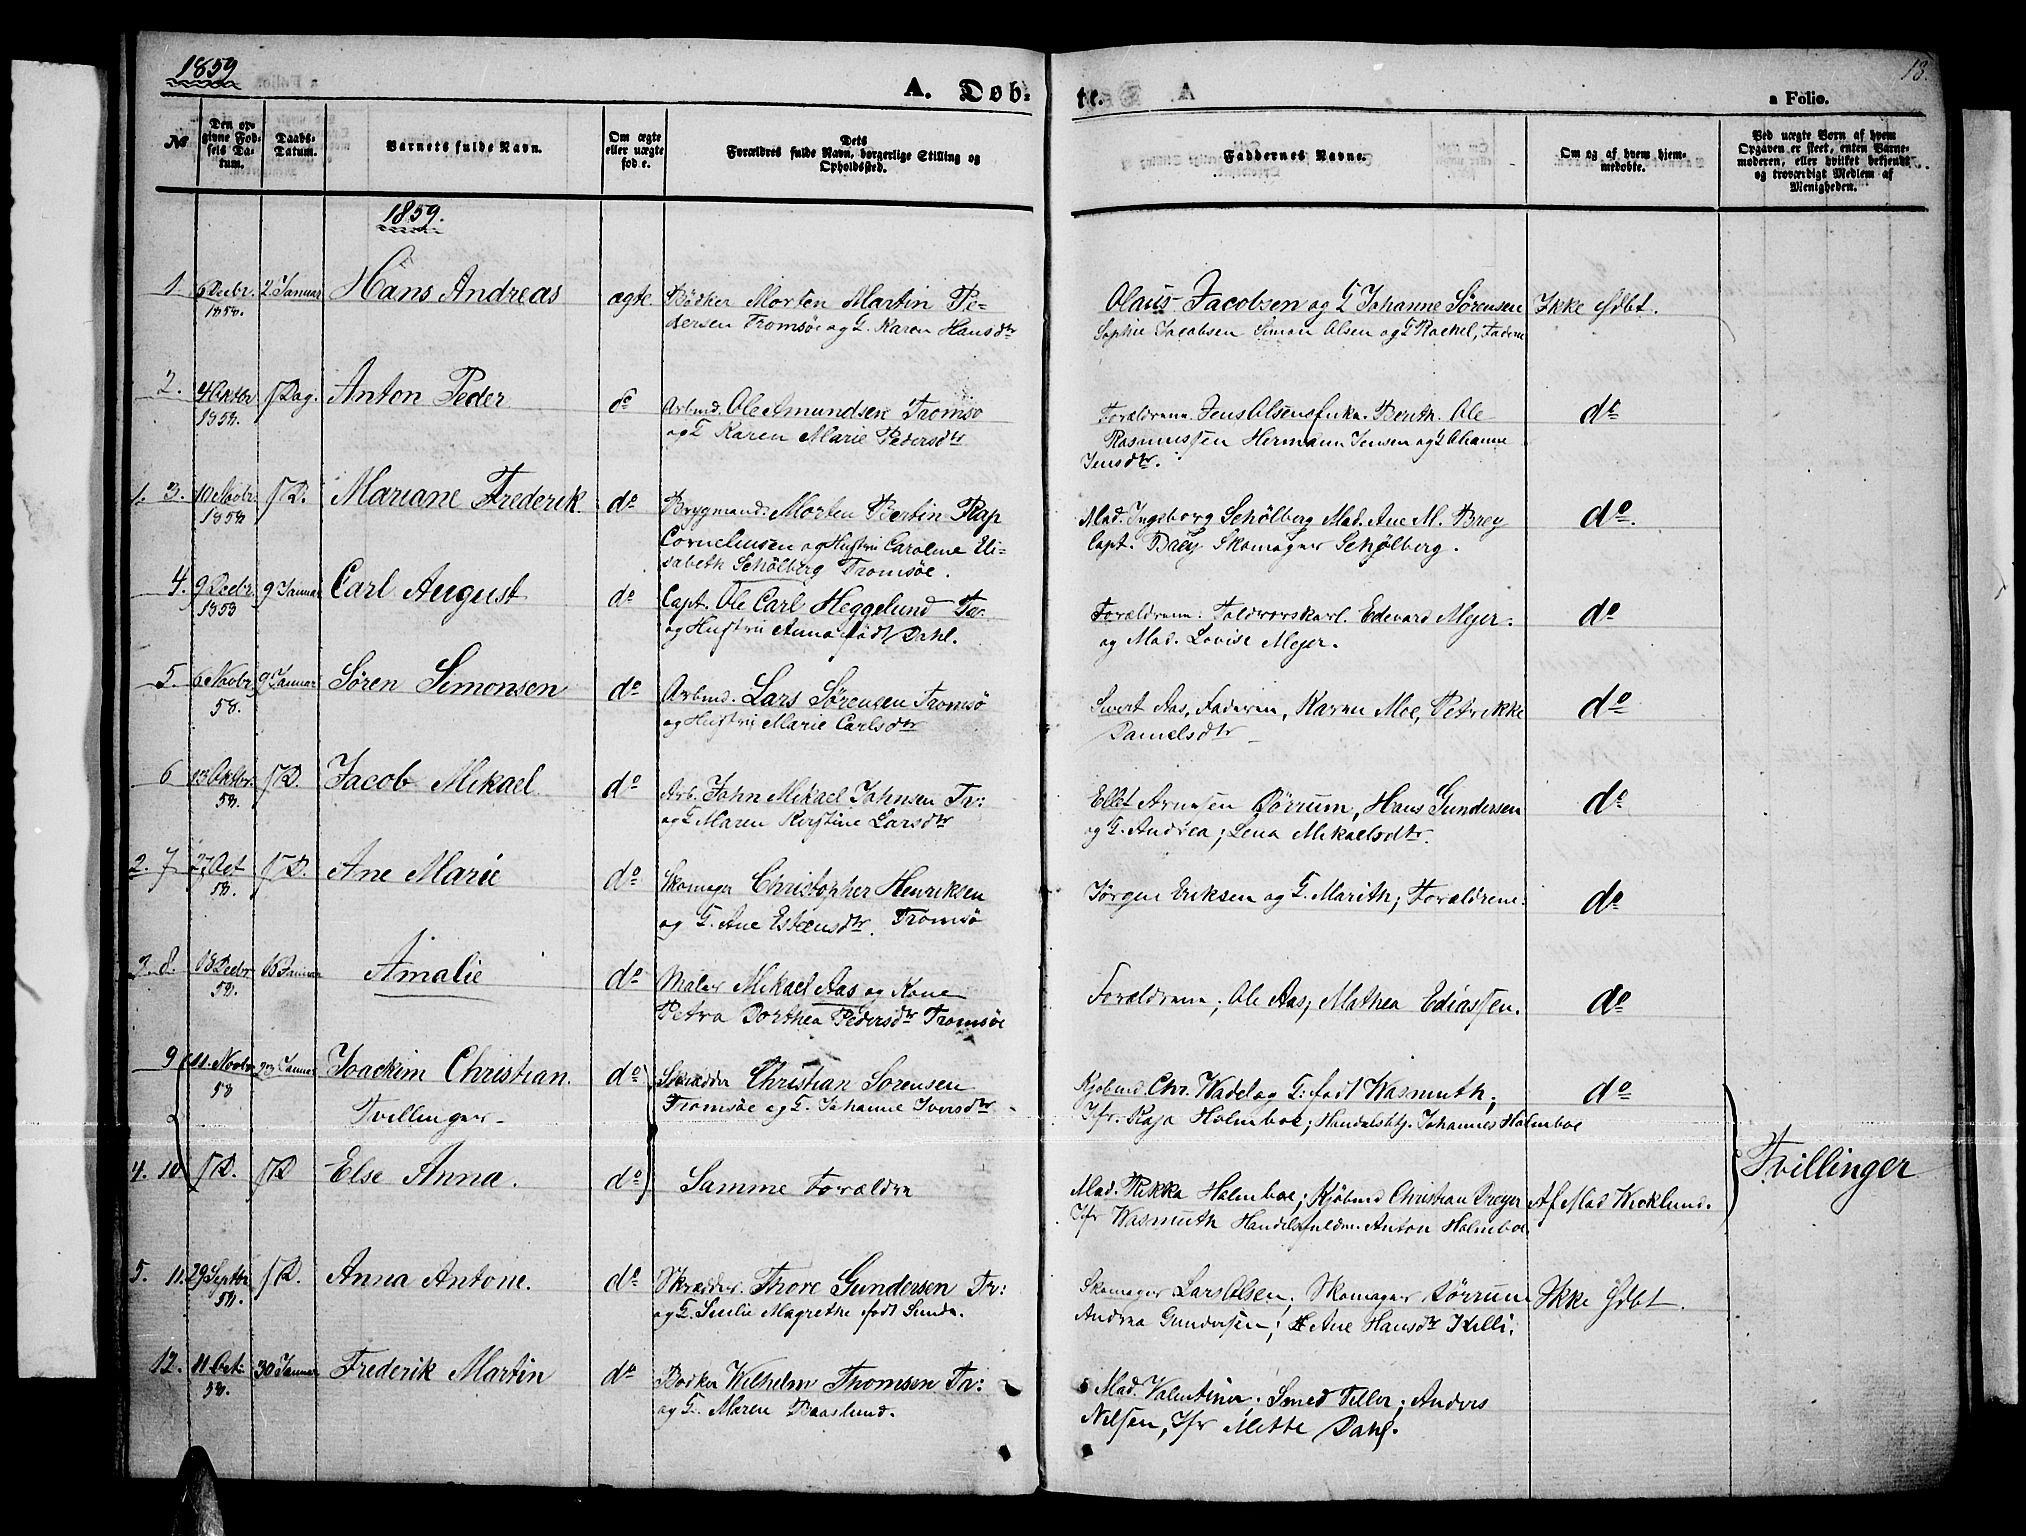 1859
A. Døb-
te.
a Folio.
13.
No
Den op-
givne Fød-
sels Da-
tum.
Daabs-
Datum.
Barnets fulde Navn.
Om ægte
eller uægte
fød.e.
Dets
Forældres fulde Navn, borgerlige Stilling og
Opholdssted.
Faddernes Navne.
Om og af hvem hjem-
medøbte.
Ved uægte Børn af hvem
Opgaven er skeet, enten Barne-
moderen, eller hvilket bekjendt
og troværdigt Medlem af
Menigheden.
1859.
1. 6 Decbr. 2 Januar Hans Andreas ægte Bödker Morten Martin Pe-
1858. dersen Tromsöe og G. Karen Hansdtr
Olaus Jacobsen og G Johanne Sörensen Ikke Hdbt.
Sophie Jacobsen Simon Olsen og G Rachel, Faderen
2. 4 Oktbr S. Dag. Anton Peder do Arbmd. Ole Amundsen Tromsö
1858. og G Karen Marie Pedersdtr
Forældrene Jens Olsens Enke Berith. Ole do
Rasmussen Hermann Jensen og G Ohanne
Jensdtr.
1. 3. 10 Novbr. S D. Mariane Frederik. do Brygmand: Morten Bertin Rap
1858 Corneliusen og Hustru Caroline Eli-
sabeth Schölberg Tromsöe.
Mad. Ingeborg Schölberg Mad. Ane M. Brey do.
Capt. Brey Skomager Schjölberg.
4. 9 Decbr 9 Januar Carl August do Capt. Ole Carl Heggelund Tr.
1858 og Hustru Anna født Dahl.
Forældrene: Toldrorskarl. Edevard Mejer. do
og Mad. Lovise Mejer.
5. 6 Novbr 9 Januar Sören Simonsen do Arbmd. Lars Sörensen Tromsö
58. og Hustru Marie Carlsdtr
Sivert Aas, Faderen, Karen Moe, Petrikke do
Danielsdtr
6 13 Oktbr. S D. Jacob Mikael do Arb. John Mikael Johnsen Tr:
58. og G Maren Kirstine Larsdtr
Ellet Arnesen Dörrum, Hans Gundersen do
og G. Andrea; Lena Mikaelsdtr.
2. 7 27 Oct S D. Ane Marie do Skomager Christopher Henriksen
58. og G. Ane Estensdtr. Tromsö
Jörgen Eriksen og G. Marith; Forældrene. do
3. 8. 18 Decbr 15 Januar Amalie do Maler Mikael Aas og Kone
58. Petra Dorthea Pedersdtr Tromsöe
Forældrene; Ole Aas; Mathea Ediassen. do
9 11. Novbr 23 Januar Joachim Christian. do Skrædder Christian Sorensen
58 Tvillinger Tromsöe og G. Johanne Iversdtr
Kjobmd. Chr. Wadel og G: født Wasmuth; do
Jfr. Kaja Holmboe; Handelsbtj. Johannes Holmboe
4. 10 S D. S D Else Anna. do Samme Forældre
Mad. Rikka Holmboe; Kjöbmd Christian Dreyer Af Mad Wicklund.
Jfr Wasmuth Handelsfuldm. Anton Holmboe
Tvillinger
5. 11. 29 Septbr S D. Anna Antone. do Skrædder. Thore Gundersen Tr:
58. og G. Magrethe født Sund.
Skomager Lars Olsen; Skomager Dörrum Ikke Hdbt.
Andrea Gundersen; Ane Hansdtr Killi.
12. 11 Oct. 30 Januar Frederik Martin do Bodker Wilhelm Thomsen Tr:
58. og G. Maren Baaslund.
Mad. Valentina; Smed Teller; Anders
Nilsen, Jfr Mette Dahl.